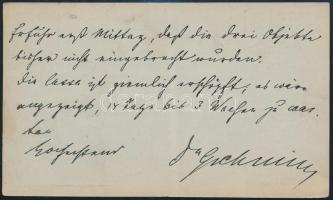 Erfuhr erst Mittag, daß die drei Objekte
bisher nicht eingebracht wurden.
Die Cassa ist ziemlich erschöpft, es wäre
angezeigt, 14 Tage bis 3 Wochen zu war-
ten
Hochachtend
Dr